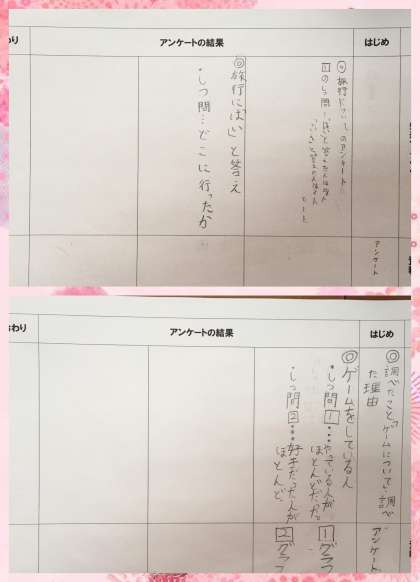 はじめ
アンケートの結果
わり
◎旅行についてのアンケート
1のしつ問
◎旅行に「はい」と答え
・しつ問…どこに行ったか
アンケート
はじめ
アンケートの結果
わり
◎調べたこと「ゲームについて」調べ
た理由
◎ゲームをしている人
・しつ問1…やっている人が
ほとんどだった。
・しつ問2…好きだった人が
ほとんど、
アンケート
1グラフ
2グラフ